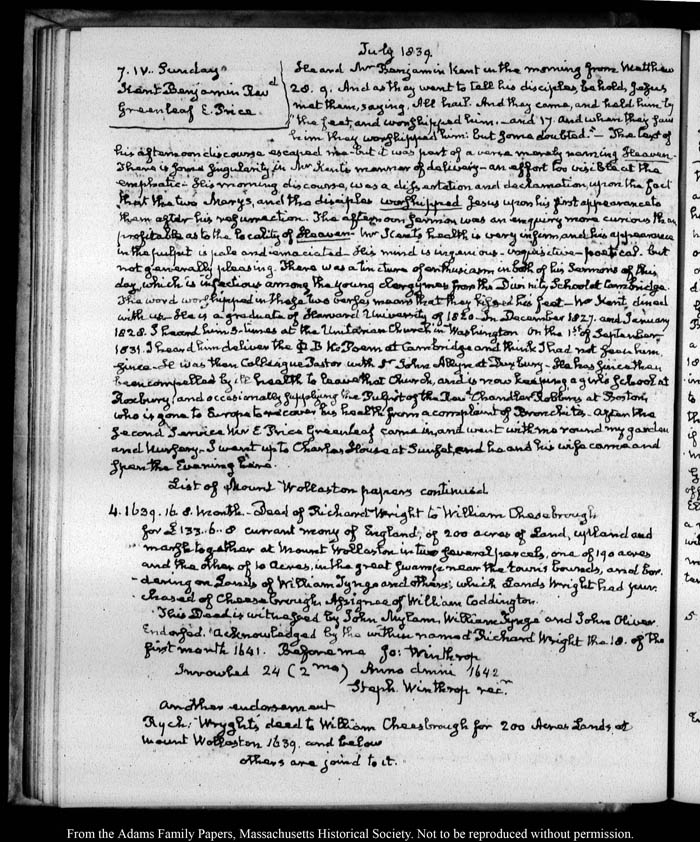 July 1839.
7. IV.. Sunday
Kent Benjamin Revd
Greenleaf E. Price
Heard Mr Benjamin Kent in the morning from Matthew
28. 9. And as they went to tell his disciples behold, Jesus
met them, saying, All hail. And they came, and held him by
the feet, and worshipped him,—and 17. And when they saw
him they worshipped him: but some doubted."— The text of
his afternoon discourse escaped me—but it was part of a verse merely naming Heaven.
There is some singularity in Mr Kent's manner of delivery—an effort too visible at the
emphatic. His morning discourse, was a dissertation and declamation, upon the fact
that the two Marys, and the disciples worshipped Jesus upon his first appearance to
them after his resurrection. The afternoon sermon was an enquiry more curious than
profitable as to the locality of Heaven. Mr Kent's health is very infirm, and his appearance
in the pulpit is pale and emaciated. His mind is ingenious— poetical— but
not generally pleasing. There was a tincture of enthusiasm in both of his Sermons of this
day, which is infectious among the young clergymen from the Divinity School at Cambridge.
The word worshipped in these two verses means that they kissed his feet— Mr Kent dined
with us— He is a graduate of Harvard University of 1820. In December 1827. and January
1828. I heard him 5. times at the Unitarian Church in Washington. On the 1st of September
1831. I heard him deliver the Φ B K Poem at Cambridge and think I had not seen him
since— He was then Colleague Pastor with Dr John Allyn at Duxbury— He has since then
been compelled by ill health to leave that Church, and is now keeping a girls School at
Roxbury, and occasionally supplying the Pulpit of the Revd Chandler Robbins at Boston,
who is gone to Europe to recover his health from a complaint of Bronchitis. After the
second Service Mr E. Price Greenleaf came in, and went with me round my garden
and Nursery— I went up to Charles's House at Sunset, and he and his wife came and
spent the Evening here.
List of Mount Wollaston papers continued
4. 1639. 16. 8. Month— Deed of Richard Wright to William Cheesebrough
for £133..6..8 currant mony of England, of 200 acres of Land, upland and
marsh together at Mount Wollaston in two several parcels, one of 190 acres
and the other of 10 Acres, in the great swamp near the town's bounds, and bor-
-dering on Lands of William Tynge and others; which Lands Wright had pur-
chased of Cheesebrough Assignee of William Coddington.
This Deed is witnessed by John Mylam, William Tynge and John Oliver
Endorsed. Acknowledged by the within named Richard Wright the 18. of the
first month 1641. Before me Jo: Winthrop
Inrowled 24 (2mo) Anno dmni 1642
Steph. Winthrop recr
Another endorsement
Rych: Wryght's deed to William Cheesbrough for 200 Acres Lands at
Mount Wollaston 1639. and below
others are joind to it.
From the Adams Family Papers, Massachusetts Historical Society. Not to be reproduced without permission.